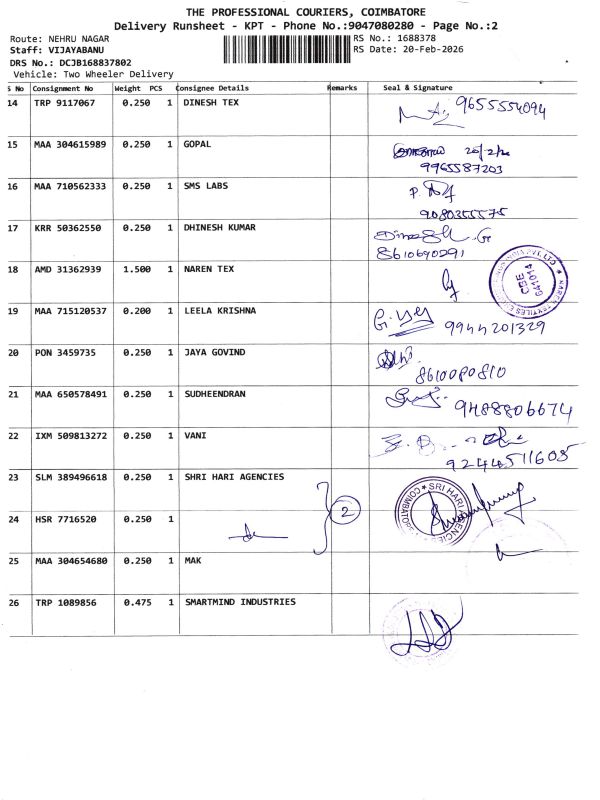 THE PROFESSIONAL COURIERS, COIMBATORE
Delivery Runsheet - KPT - Phone No.:9047080280 - Page No.:2
Route: NEHRU NAGAR
RS No.: 1688378
Staff: VIJAYABANU
RS Date: 20-Feb-2026
DRS No.: DCJB168837802
Vehicle: Two Wheeler Delivery
S No Consignment No Weight PCS Consignee Details Remarks Seal & Signature
14 TRP 9117067 0.250 1 DINESH TEX 9655554094
15 MAA 304615989 0.250 1 GOPAL 20/2/26
9965587203
16 MAA 710562333 0.250 1 SMS LABS P.
9080355575
17 KRR 50362550 0.250 1 DHINESH KUMAR Dinesh. G
8610690291
18 AMD 31362939 1.500 1 NAREN TEX CBE 641014
19 MAA 715120537 0.200 1 LEELA KRISHNA 9944201329
20 PON 3459735 0.250 1 JAYA GOVIND
8610080810
21 MAA 650578491 0.250 1 SUDHEENDRAN 9488806674
22 IXM 509813272 0.250 1 VANI
9244511605
23 SLM 389496618 0.250 1 SHRI HARI AGENCIES SRI HARI AGENCIES COIMBATORE
2
24 HSR 7716520 0.250 1
25 MAA 304654680 0.250 1 MAK
26 TRP 1089856 0.475 1 SMARTMIND INDUSTRIES